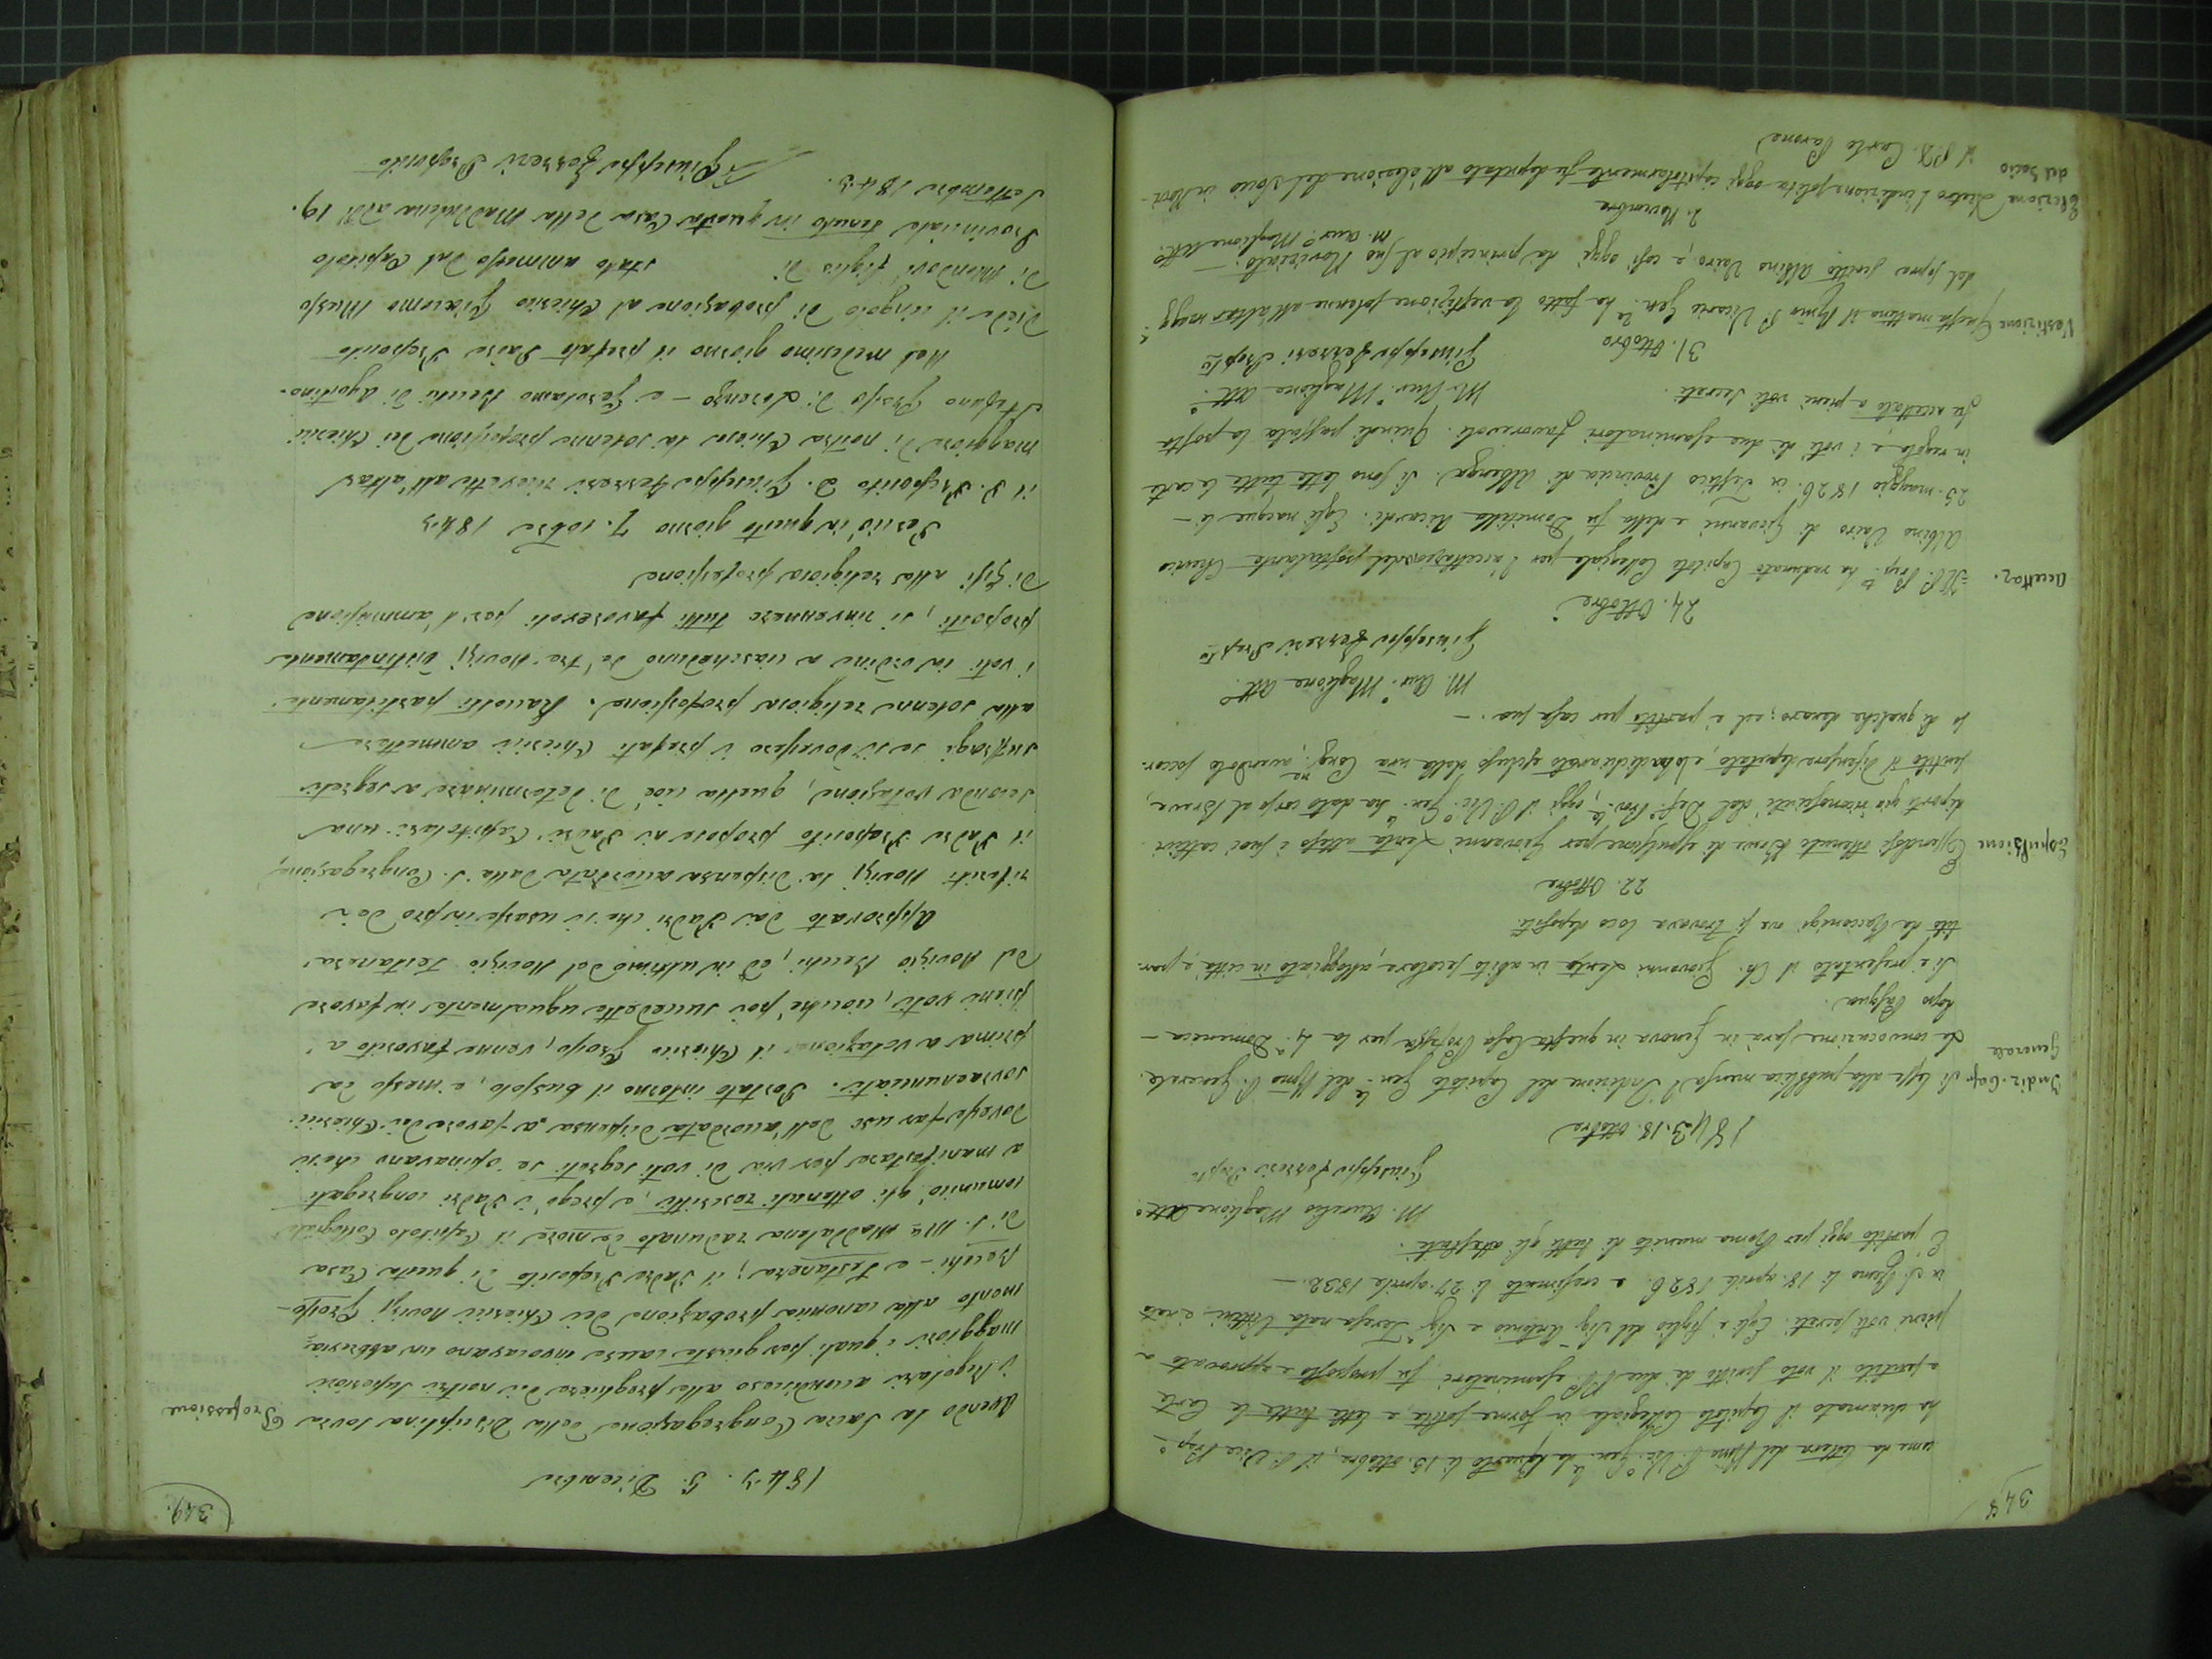 348
uma da lettera del Rmo P. Vic.o Gen.le da li 15. ottobre, il P. Vice Prep.o
ha chiamato il Capitolo Collegiale in forma solita, e lette tutte le Carte
e sentito il voto scritto di due PP. esaminatori fu proposto e approvato a
pieni voti secreti. Egli è figlio del Sig. Antonio e Sig.a Teresa nata è nato
in S. Remo li 18. aprile 1826. e cresimato li 27. aprile 1832. —
E' partito oggi per Roma munito di tutti gli attestati.
M. Aurelio Maglione Att.o
Giuseppe Ferreri Prep.to
1843. 18. ottobre
Indiz. Cap.
Generale
Si lesse alla pubblica mensa l'Indizione del Capitolo Gen.le del Rmo P. Generale.
La convocazione sarà in Genova in questa Casa Professa per la 4.a Domenica —
dopo Pasqua.
Si è presentato il Ch. Giovanni Lenta in abito secolare, alloggiato in città, e par-
tito da Racconigi ove si trovava loco depositi.
22. Ottobre
Espulsione
Essendosi ottenuto Breve di espulsione per Giovanni Lenta attesi i suoi cattivi
diporti già riconosciuti dal Def.o Prov.le, oggi il P. Vic.o Gen.le ha dato corso al Breve,
sentito il Difensore deputato, e lo ha dichiarato escluso dalla nra Cong.ne avendolo soccor-
so di qualche denaro; ed è partito per casa sua. —
M. Aur.o Maglione Att.o
Giuseppe Ferreri Prep.to
24. Ottobre
Accettaz.
Il P. Prep.to ha radunato Capitolo Collegiale per l'accettazione del postulante Cherico
Albino Vairo di Giovanni e della fu Domitilla Ricardi. Egli nacque li —
25. maggio 1826. in Testico Provincia di Albenga. Si sono lette tutte le carte
in regola e i voti di due esaminatori favorevoli. Quindi passata la posta
fu accettato a pieni voti secreti.
M. Aur.o Maglione Att.o
Giuseppe Ferreri Prep.to
31. Ottobre
Vestizione
Questa mattina il Rmo P. Vicario Gen.le ha fatto la vestizione solenne all'altar magg.e
del sopra scritto Albino Vairo, e così oggi dà principio al suo Noviziato. —
M. Aur.o Maglione Att.o
2. Novembre
Elezione
del Socio
Dietro l'indizione solita oggi capitolarmente fu deputato all'elezione del Socio in Novi
il P. D. Carlo Parone
349.
1843. 5. Dicembre
Professione
Avendo la Sacra Congregazione della Disciplina sovra
i Regolari accondisceso alla preghiera dei nostri Superiori
maggiori i quali per giuste cause invocavano un abbrevia=
mento alla canonica probazione dei Chierici Novizj Grosso-
Becchi - e Testanera; il Padre Preposito di questa Casa
di S. M.a Maddalena radunato de more il Capitolo Collegiale
comunicò gli ottenuti rescritti, e pregò i Padri congregati
a manifestare per via di voti segreti se opinavano che si
dovesse far uso dell'accordata dispensa a favore dei Chierici
sovraenunciati. Portato intorno il bussolo, e messo la
prima a votazione il Chierico Grosso, venne favorito a
pieni voti, ciocchè poi succedette ugualmente in favore
del Novizio Becchi, ed in ultimo del Novizio Testanera.
Approvato dai Padri che si usasse in pro dei
riferiti Novizj la dispensa accordata dalla S. Congregazione,
il Padre Preposito propose ai Padri Capitolari una
seconda votazione, quella cioè di determinare a segreti
suffragj se si dovessero i prefati Chierici ammettere
alla solenne religiosa professione. Raccolti partitamente
i voti in ordine a ciascheduno de' tre Novizj distintamente
proposti, si rinvennero tutti favorevoli per l'ammissione
di essi alla religiosa professione
Perciò in questo giorno 7. 10bre 1843
il P. Preposito D. Giuseppe Ferreri ricevette all'altar
maggiore di nostra Chiesa la solenne professione dei Chierici
Stefano Grosso di Lorenzo - e Gerolamo Becchi di Agostino.
Nel medesimo giorno il prefato Padre Preposito
diede il cingolo di probazione al Chierico Giacomo Musso
di Mondovì figlio di stato ammesso dal Capitolo
Provinciale tenuto in questa Casa della Maddalena addì 19.
Settembre 1843.
Giuseppe Ferreri Preposito